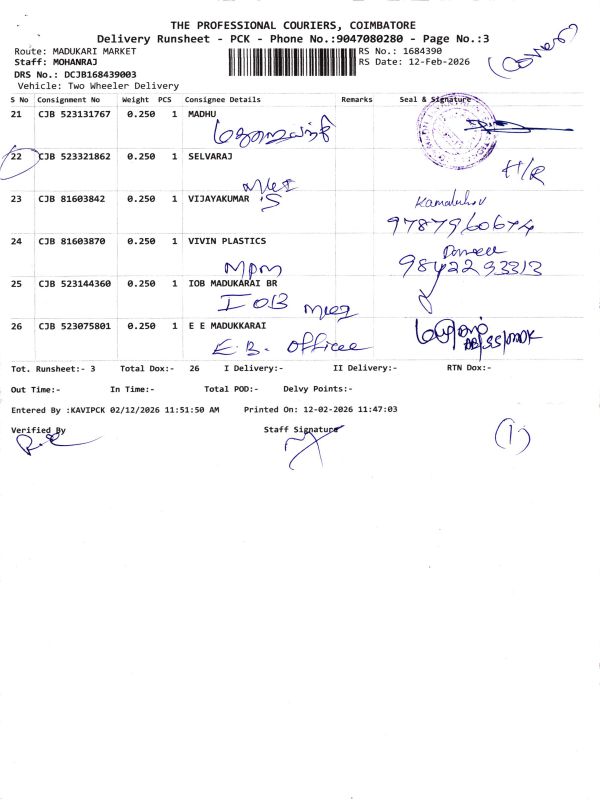 THE PROFESSIONAL COURIERS, COIMBATORE
Delivery Runsheet - PCK - Phone No.:9047080280 - Page No.:3
Route: MADUKARI MARKET RS No.: 1684390
Staff: MOHANRAJ RS Date: 12-Feb-2026
DRS No.: DCJB168439003
Vehicle: Two Wheeler Delivery
S No Consignment No Weight PCS Consignee Details Remarks Seal & Signature
21 CJB 523131767 0.250 1 MADHU
22 CJB 523321862 0.250 1 SELVARAJ
H/R
23 CJB 81603842 0.250 1 VIJAYAKUMAR S
9787960674
24 CJB 81603870 0.250 1 VIVIN PLASTICS
MPM 9842293313
25 CJB 523144360 0.250 1 IOB MADUKARAI BR
IOB
26 CJB 523075801 0.250 1 E E MADUKKARAI
E.B. Officee
Tot. Runsheet:- 3 Total Dox:- 26 I Delivery:- II Delivery:- RTN Dox:-
Out Time:- In Time:- Total POD:- Delvy Points:-
Entered By :KAVIPCK 02/12/2026 11:51:50 AM Printed On: 12-02-2026 11:47:03
Verified By Staff Signature
(1)